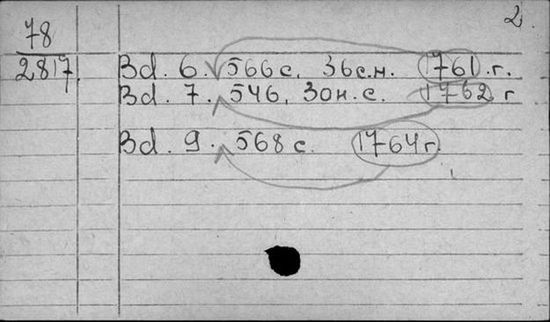 2.
78
2817
Bd. 6. 566 с. 36 с.н. 1761 г.
Bd. 7. 546, 30 н. с. 1762 г
Bd. 9. 568 с. 1764 г.